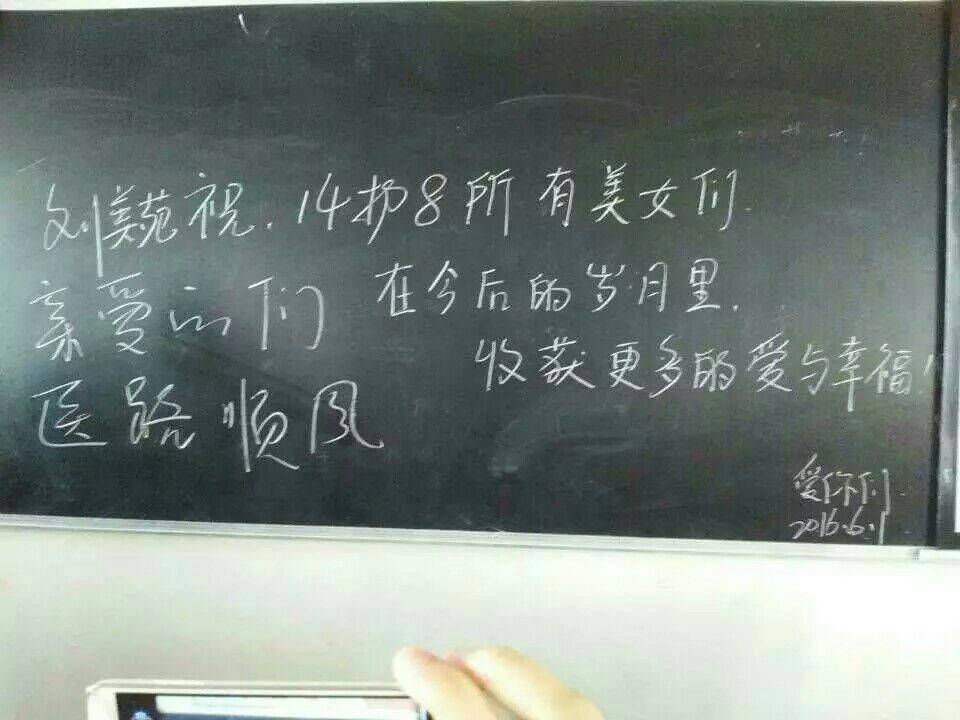 刘美苑祝.14护8所有美女们
亲爱的们
在今后的岁月里.
收获更多的爱与幸福!
医路顺风
爱你们
2016.6.1